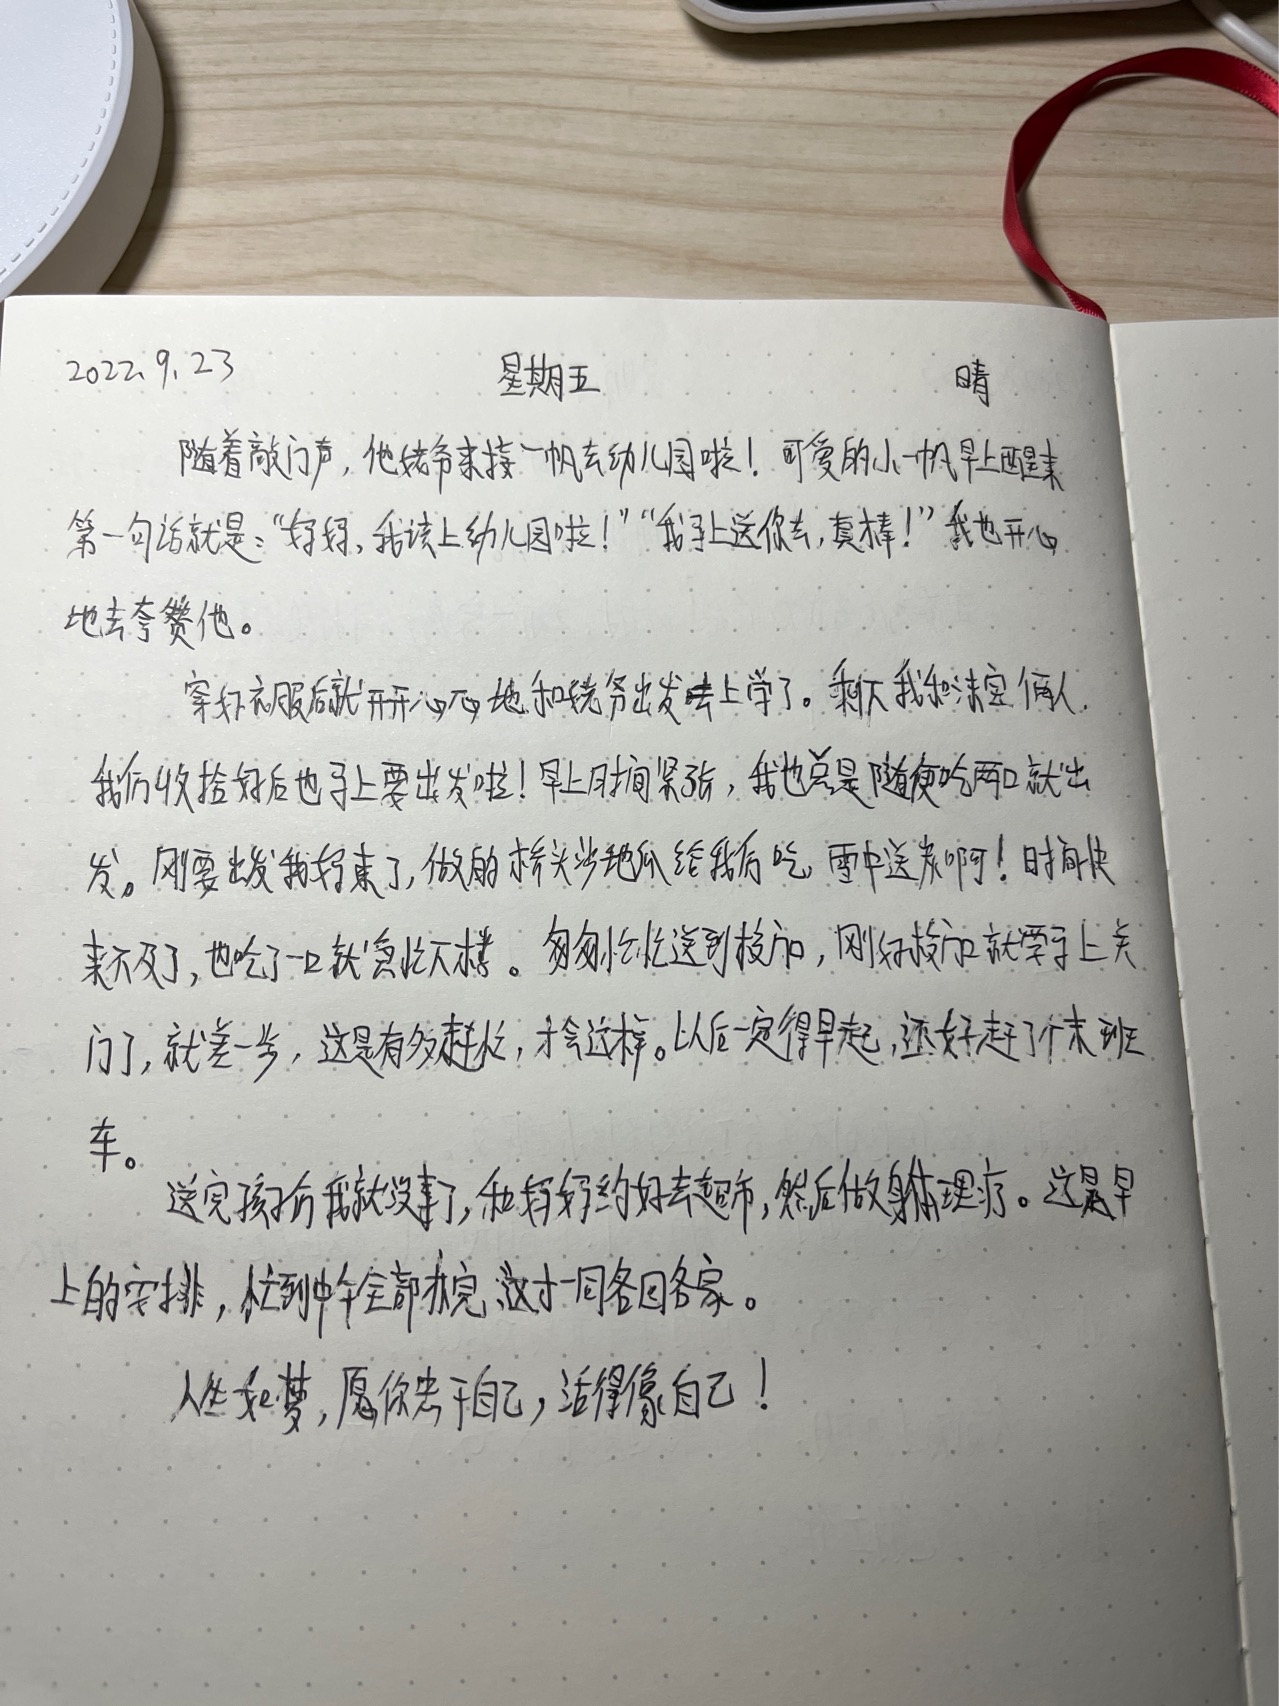 2022.9.23 星期五 晴
随着敲门声，他姥爷来接一帆去幼儿园啦！可爱的小一帆早上醒来
第一句话就是：“妈妈，我该上幼儿园啦！”“我马上送你去，真棒！”我也开心
地去夸赞他。
穿好衣服后就开开心心地和姥爷出发去上学了。剩下我和沫宝俩人，
我们收拾好后也马上要出发啦！早上时间紧张，我也总是随便吃两口就出
发。刚要出发我妈来了，做的拔丝地瓜给我们吃，雪中送炭啊！时间快
来不及了，也吃了一口就急忙下楼。匆匆忙忙送到校门口，刚好校门口就要马上关
门了，就差一步，这是有多赶忙，才会这样。以后一定得早起，还好赶了个末班
车。
送完孩子们我就没事了，和妈妈约好去超市，然后做身体理疗。这是早
上的安排，忙到中午全部办完，这才一同各回各家。
人生如梦，愿你忠于自己，活得像自己！